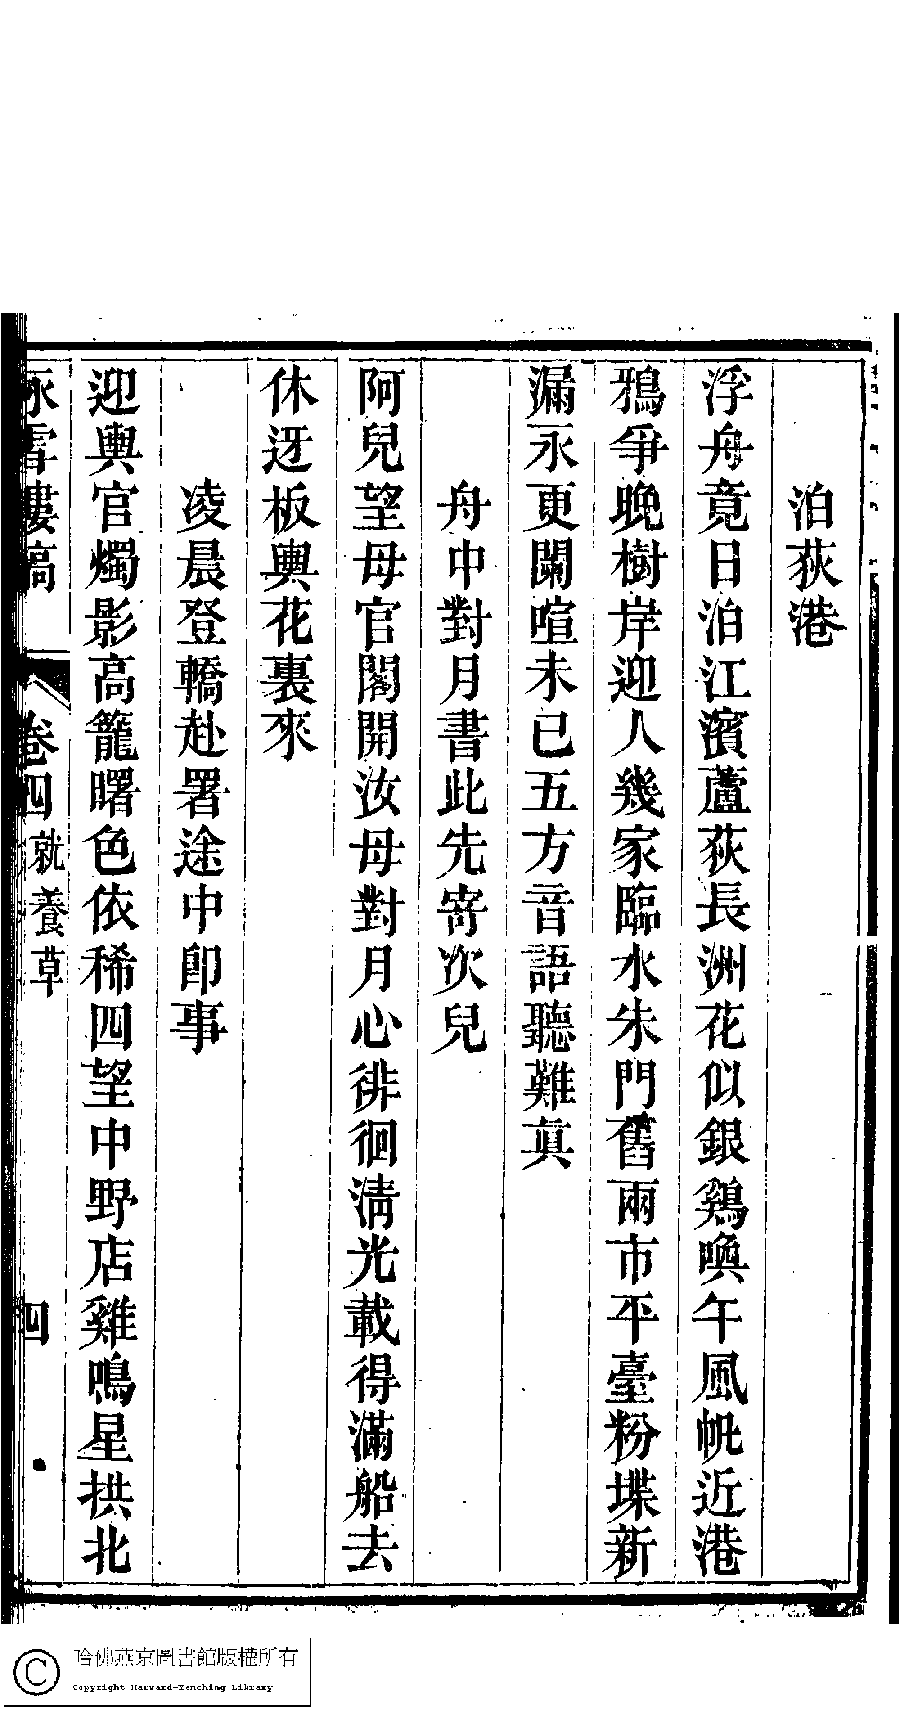 泊荻港
浮舟竟日泊江濱蘆荻長洲花似銀鷄喚午風帆近港
鴉爭晚樹岸迎人幾家臨水朱門舊兩市平臺粉堞新
漏永更闌喧未已五方音語聽難真
舟中對月書此先寄次兒
阿兒望母官閣開汝母對月心徘徊淸光載得滿船去
休迓板輿花裏來
凌晨登轎赴署途中卽事
迎輿官燭影高籠曙色依稀四望中野店雞鳴星拱北
雪樓稿 卷四 就養草 四
哈佛燕京圖書館版權所有
Copyright Harvard-Yenching Library